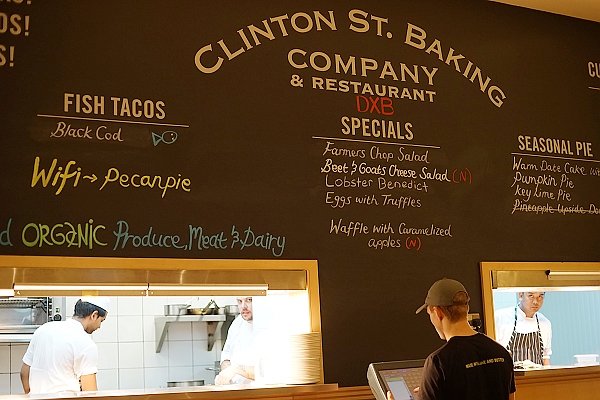 OS!
S!
CLINTON ST. BAKING
COMPANY
& RESTAURANT
DXB
FISH TACOS
Black Cod
Wifi → Pecanpie
ORGANIC Produce, Meat & Dairy
SPECIALS
Farmers Chop Salad
Beet & Goats Cheese Salad (N)
Lobster Benedict
Eggs with Truffles
Waffle with Caramelized
apples (N)
SEASONAL PIE
Warm Date Cake
Pumpkin Pie
Key Lime Pie
Pineapple Upside